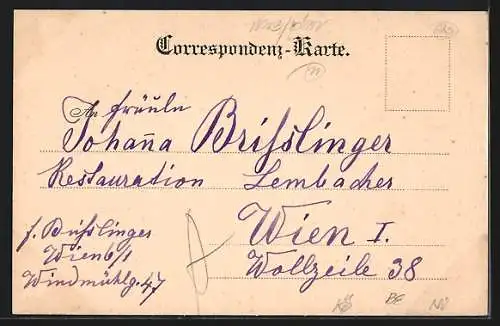 Correspondenz-Karte.
An Fräuln
Johanna Brißlinger
Restauration Lembacher
Wien I.
Wollzeile 38
f. Brißlinger
Wien 6/1
Windmühlg. 47